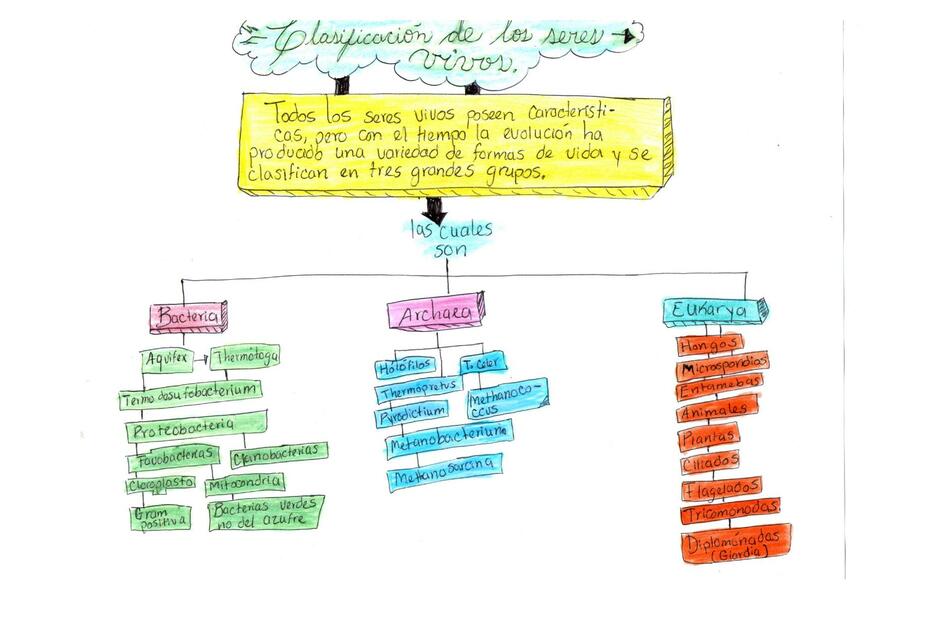 Clasificación de los seres
vivos.
Todos los seres vivos poseen Característi-
cas, pero con el tiempo la evolución ha
producido una variedad de formas de vida y se
clasifican en tres grandes grupos.
las cuales
son
Bacteria
Archaea
Eukarya
Aquifex
Thermótoga
Termodosufobacterium
Proteobacteria
Favobacterias
Cianobacterias
Cloroplasto
Mitocondria
Gram
positiva
Bacterias verdes
no del azufre
Halófilos
T. Celer
Thermopretus
Methanoco-
ccus
Pyrodictium
Metanobacterium
Methanosarcina
Hongos
Microsporidios
Entamebas
Animales
Plantas
Ciliados
Flagelados
Tricomonodas.
Diplomónadas
(Giardia)